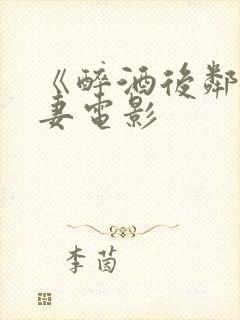 《醉酒后鄰
妻電影
李茵